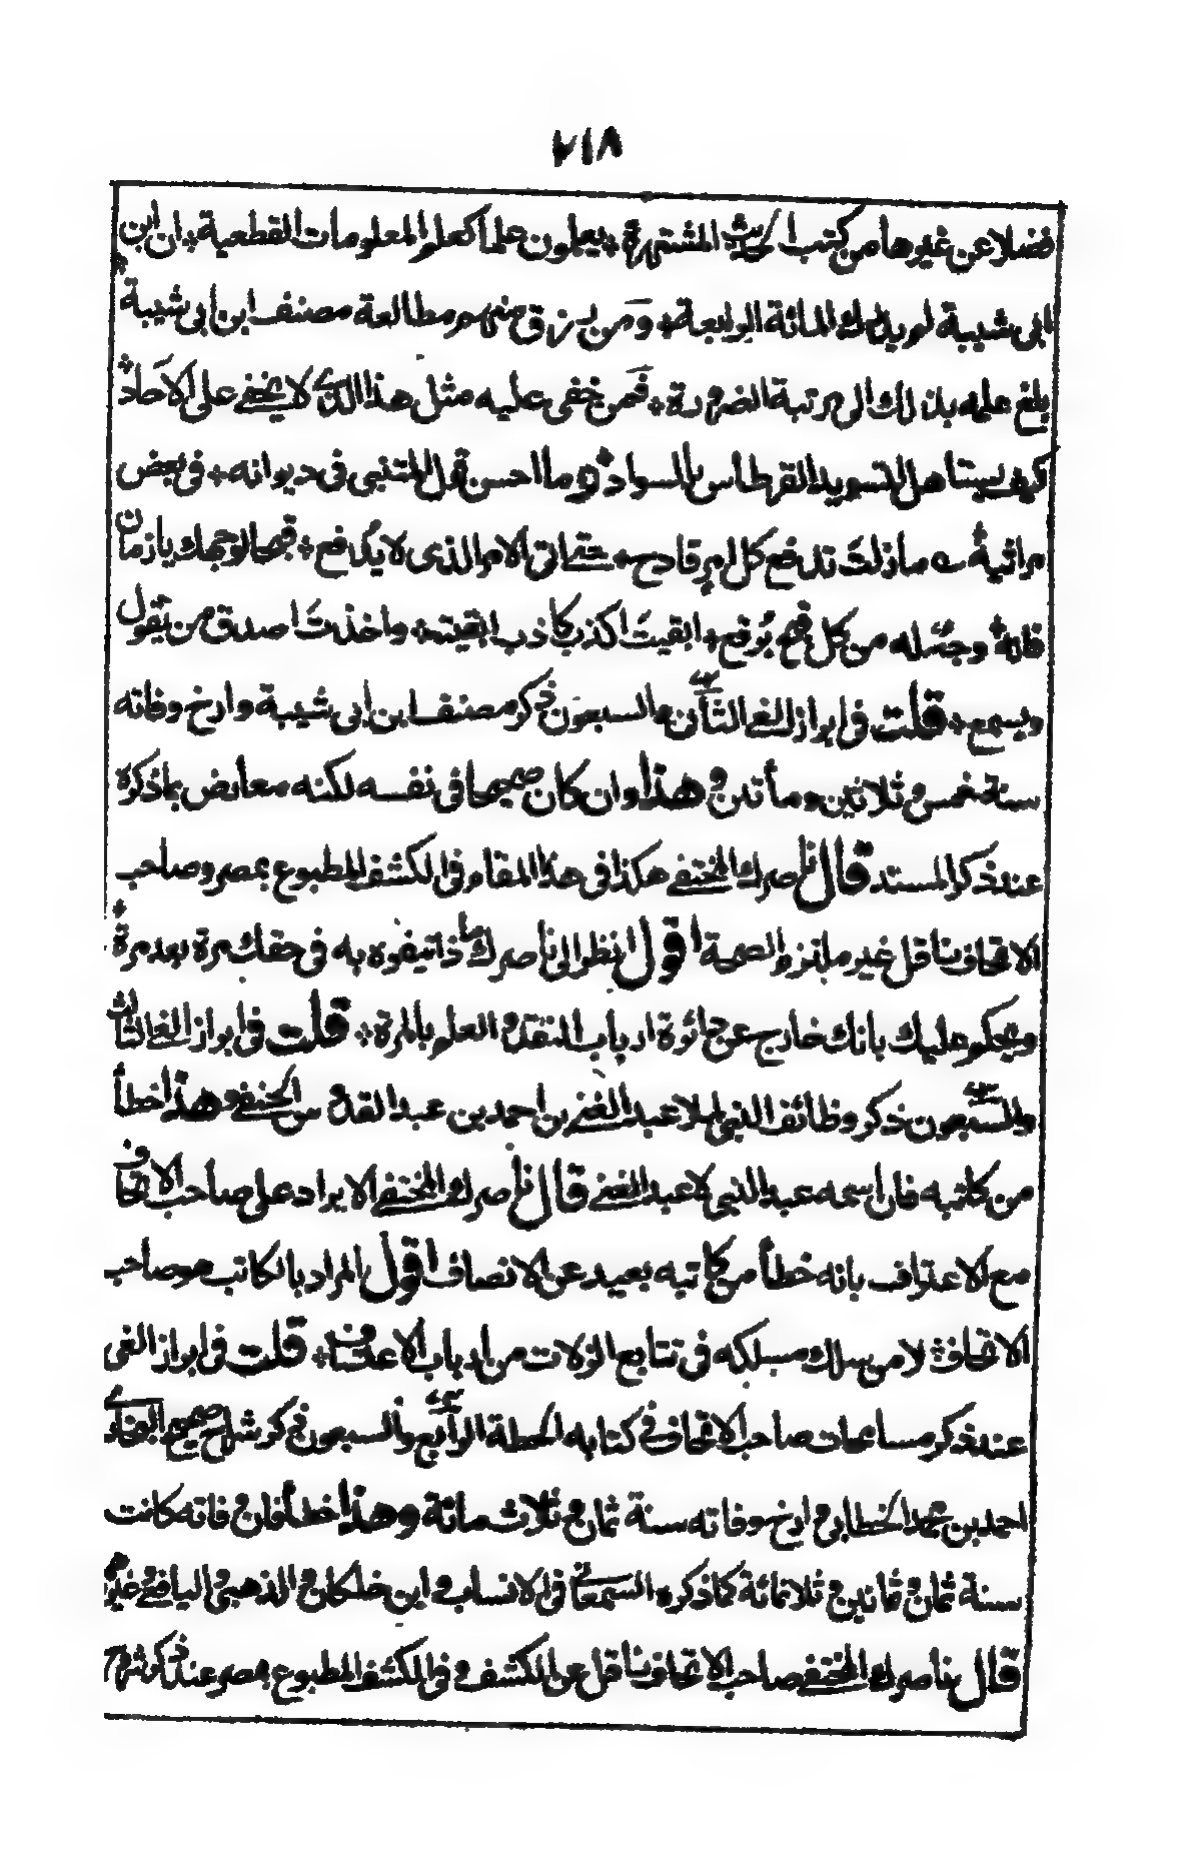 ٢١٨
فضلا عن غيرها من كتب الحديث المشتهرة، يعلمون علما كعلم المعلومات القطعية، ان ابن
ابى شيبة لم يدرك المائة الرابعة، ومن لم يرزق منهم مطالعة مصنف ابن ابى شيبة
بلغ علمه بذلك الى مرتبة الضرورة، فمن خفى عليه مثل هذا الذى لا يخفى على الآحاد
كيف يستاهل لتسويد القرطاس بالسواد وما احسن قول المتنبى فى ديوانه، فى بعض
مراثيه ما زلت تدفع كل امر قادح، حتى اتى الامر الذى لا يدفع، قبحا لوجهك يا زمان
فانه وجه له من كل قبح برقع، ابقيت اكذب كاذب ابقيته، واخذت اصدق من يقول
ويسمع، قلت فى ابراز الغى الثانى والسبعون ذكر مصنف ابن ابى شيبة وارخ وفاته
سنة خمس وثلاثين ومأتين وهذا وان كان صحيحا فى نفسه لكنه معارض بما ذكره
عند ذكر المسند قال ناصرك المختفى هكذا فى هذا المقام فى الكشف المطبوع بمصر وصاحب
الاتحاف ناقل غير ملتزم الصحة اقول انظر الى ناصرك ماذا يتفوه به فى حقك مرة بعد مرة
ويحكم عليك بانك خارج عن دائرة ارباب النقد والعلم بالمرة، قلت فى ابراز الغى الثالث
والسبعون ذكر وظائف النبى لملا عبد الغنى بن احمد بن عبد القدوس الحنفى وهذا خطأ
من كاتبه فان اسمه عبد النبى لا عبد الغنى قال ناصرك المختفى الايراد على صاحب الاتحاف
مع الاعتراف بانه خطأ من كاتبه بعيد عن الانصاف اقول المراد بالكاتب هو صاحب
الاتحاف لا من سلك مسلكه فى تتابع الزلات من ارباب الاعتساف، قلت فى ابراز الغى
عند ذكر مسامحات صاحب الاتحاف فى كتابه الحطة الرابع والسبعون ذكر شراح صحيح البخارى
احمد بن محمد الخطابى وارخ وفاته سنة ثمان وثلاث مائة وهذا خطأ فان وفاته كانت
سنة ثمان وثمانين وثلاثمائة كما ذكره السمعانى فى الانساب وابن خلكان والذهبى واليافعى وغيرهم
قال ناصرك المختفى صاحب الاتحاف ناقل عن الكشف وفى الكشف المطبوع بمصر عند ذكر شروح